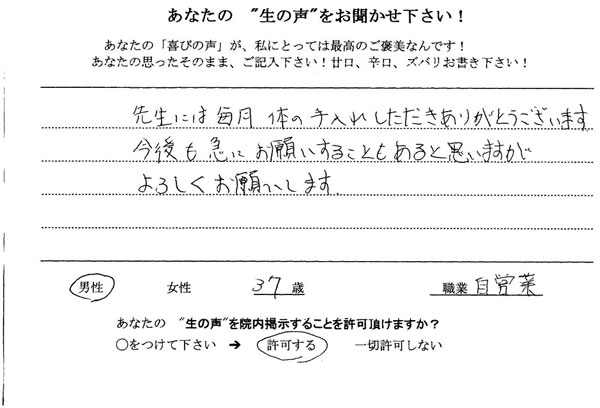 あなたの "生の声"をお聞かせ下さい！
あなたの「喜びの声」が、私にとっては最高のご褒美なんです！
あなたの思ったそのまま、ご記入下さい！甘口、辛口、ズバリお書き下さい！
先生には毎月 体の手入れしただきありがとうございます
今後も急にお願いすることもあると思いますが
よろしくお願いします
男性 女性 37歳 職業 自営業
あなたの "生の声"を院内掲示することを許可頂けますか？
○をつけて下さい ➔ 許可する 一切許可しない